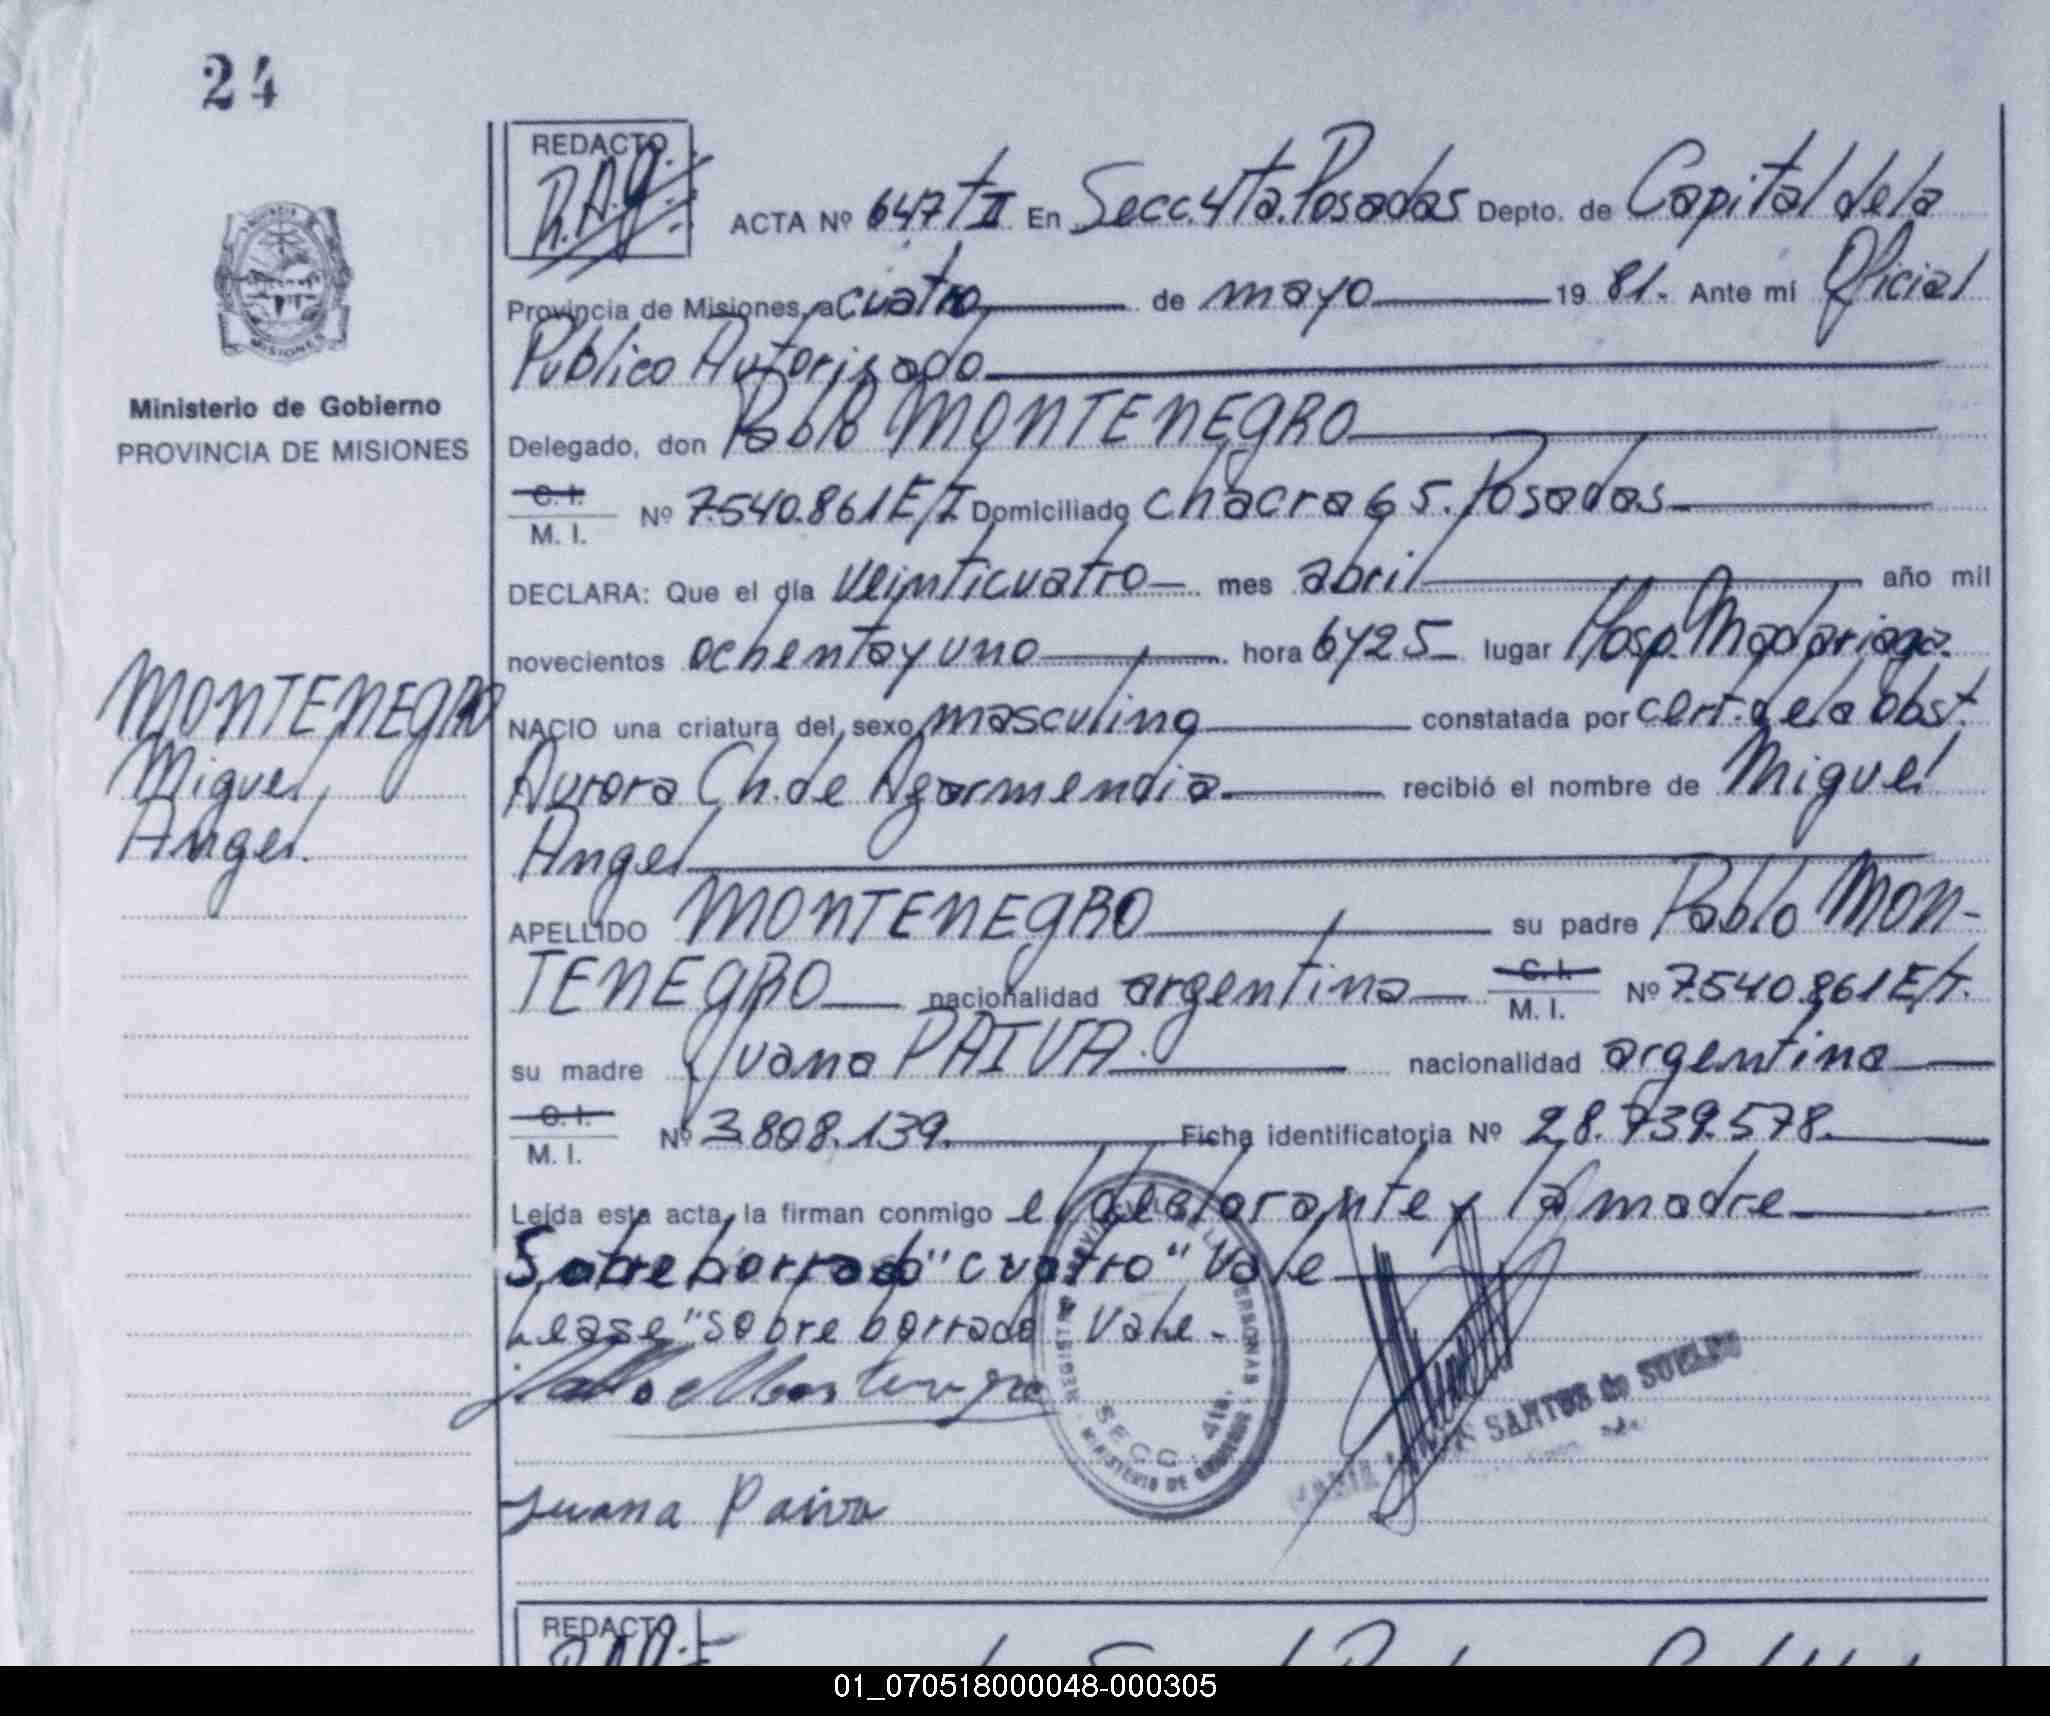 24
REDACTO
R.A.G.
ACTA Nº 647 T II En Secc. 4ta. Posadas Depto. de Capital de la
Provincia de Misiones, a cuatro de mayo 19 81.- Ante mí Oficial
Publico Autorisado
Ministerio de Gobierno
PROVINCIA DE MISIONES
Delegado, don Pablo MONTENEGRO
C. I.
M. I. Nº 7.540.861 E/T Domiciliado chacra 65. Posadas
DECLARA: Que el día veinticuatro mes abril año mil
novecientos ochenta y uno hora 6 y 25 lugar Hosp. Madariaga.
MONTENEGRO
Miguel
Angel.
NACIO una criatura del sexo masculino constatada por cert. de la obst.
Aurora Ch. de Agarmendia recibió el nombre de Miguel
Angel
APELLIDO MONTENEGRO su padre Pablo MON-
TENEGRO nacionalidad argentina C. I. M. I. Nº 7.540.861 E/T.
su madre Juana PAIVA. nacionalidad argentina
C. I.
M. I. Nº 3.808.139. Ficha identificatoria Nº 28.739.578.
Leída esta acta, la firman conmigo el declarante y la madre
Sobre borrado "cuatro" Vale
Lease "sobre borrado Vale.-
Pablo Montenegro
SECC. 4ta.
MINISTERIO DE GOBIERNO
SANTOS de SUELDO
Juana Paiva
REDACTO
01_070518000048-000305